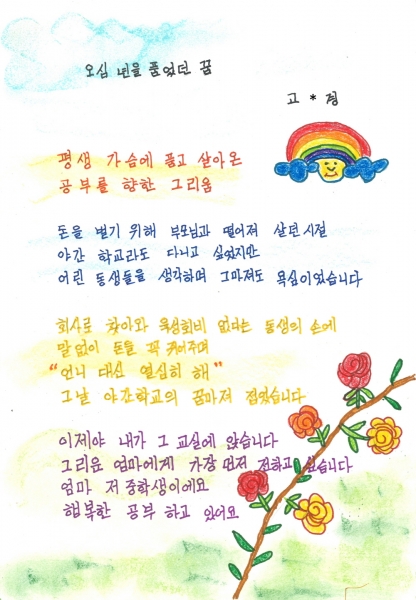 오십 년을 품었던 꿈
고 * 경
평생 가슴에 품고 살아온
공부를 향한 그리움
돈을 벌기 위해 부모님과 떨어져 살던 시절
야간 학교라도 다니고 싶었지만
어린 동생들을 생각하며 그마져도 욕심이었습니다
회사로 찾아와 육성회비 없다는 동생의 손에
말없이 돈을 꼭 쥐어주며
"언니 대신 열심히 해"
그날 야간학교의 꿈마져 접었습니다
이제야 내가 그 교실에 앉습니다
그리운 엄마에게 가장 먼저 전하고 싶습니다
엄마 저 중학생이에요
행복한 공부 하고 있어요